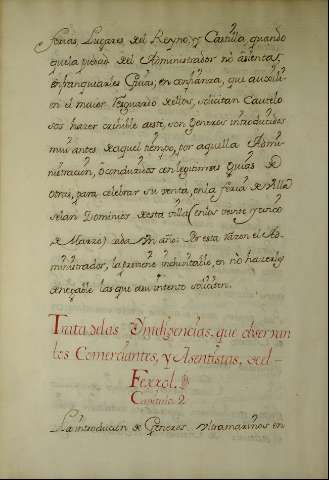 ferias, Lugares del Reyno, y Castilla, quando
que la piedad del Administrador no
enfranquiarles Guias, en confianza, que
en el mejor dellos, solicitan Cautelo
sos hazer creible aeste, son generos introducidos
muy antes de aquel tiempo, por aquella Admi-
nistracion, ò conduzidos con legitimas guias de
otras, para celebrar su venta, en la feria de Villa
de San Dominico desta villa (en los veinte y cinco
de Marzo) cada Un año: Por esta razon el Ad-
ministrador, la previene inescusable, en no hazerlos
denegable las que de su intento soliciten.
Trata de las Ynteligencias, que observan
los Comerciantes, y Asentistas, del
Ferrol.
Capitulo 2.
La introducion de Generos Ultramarinos en